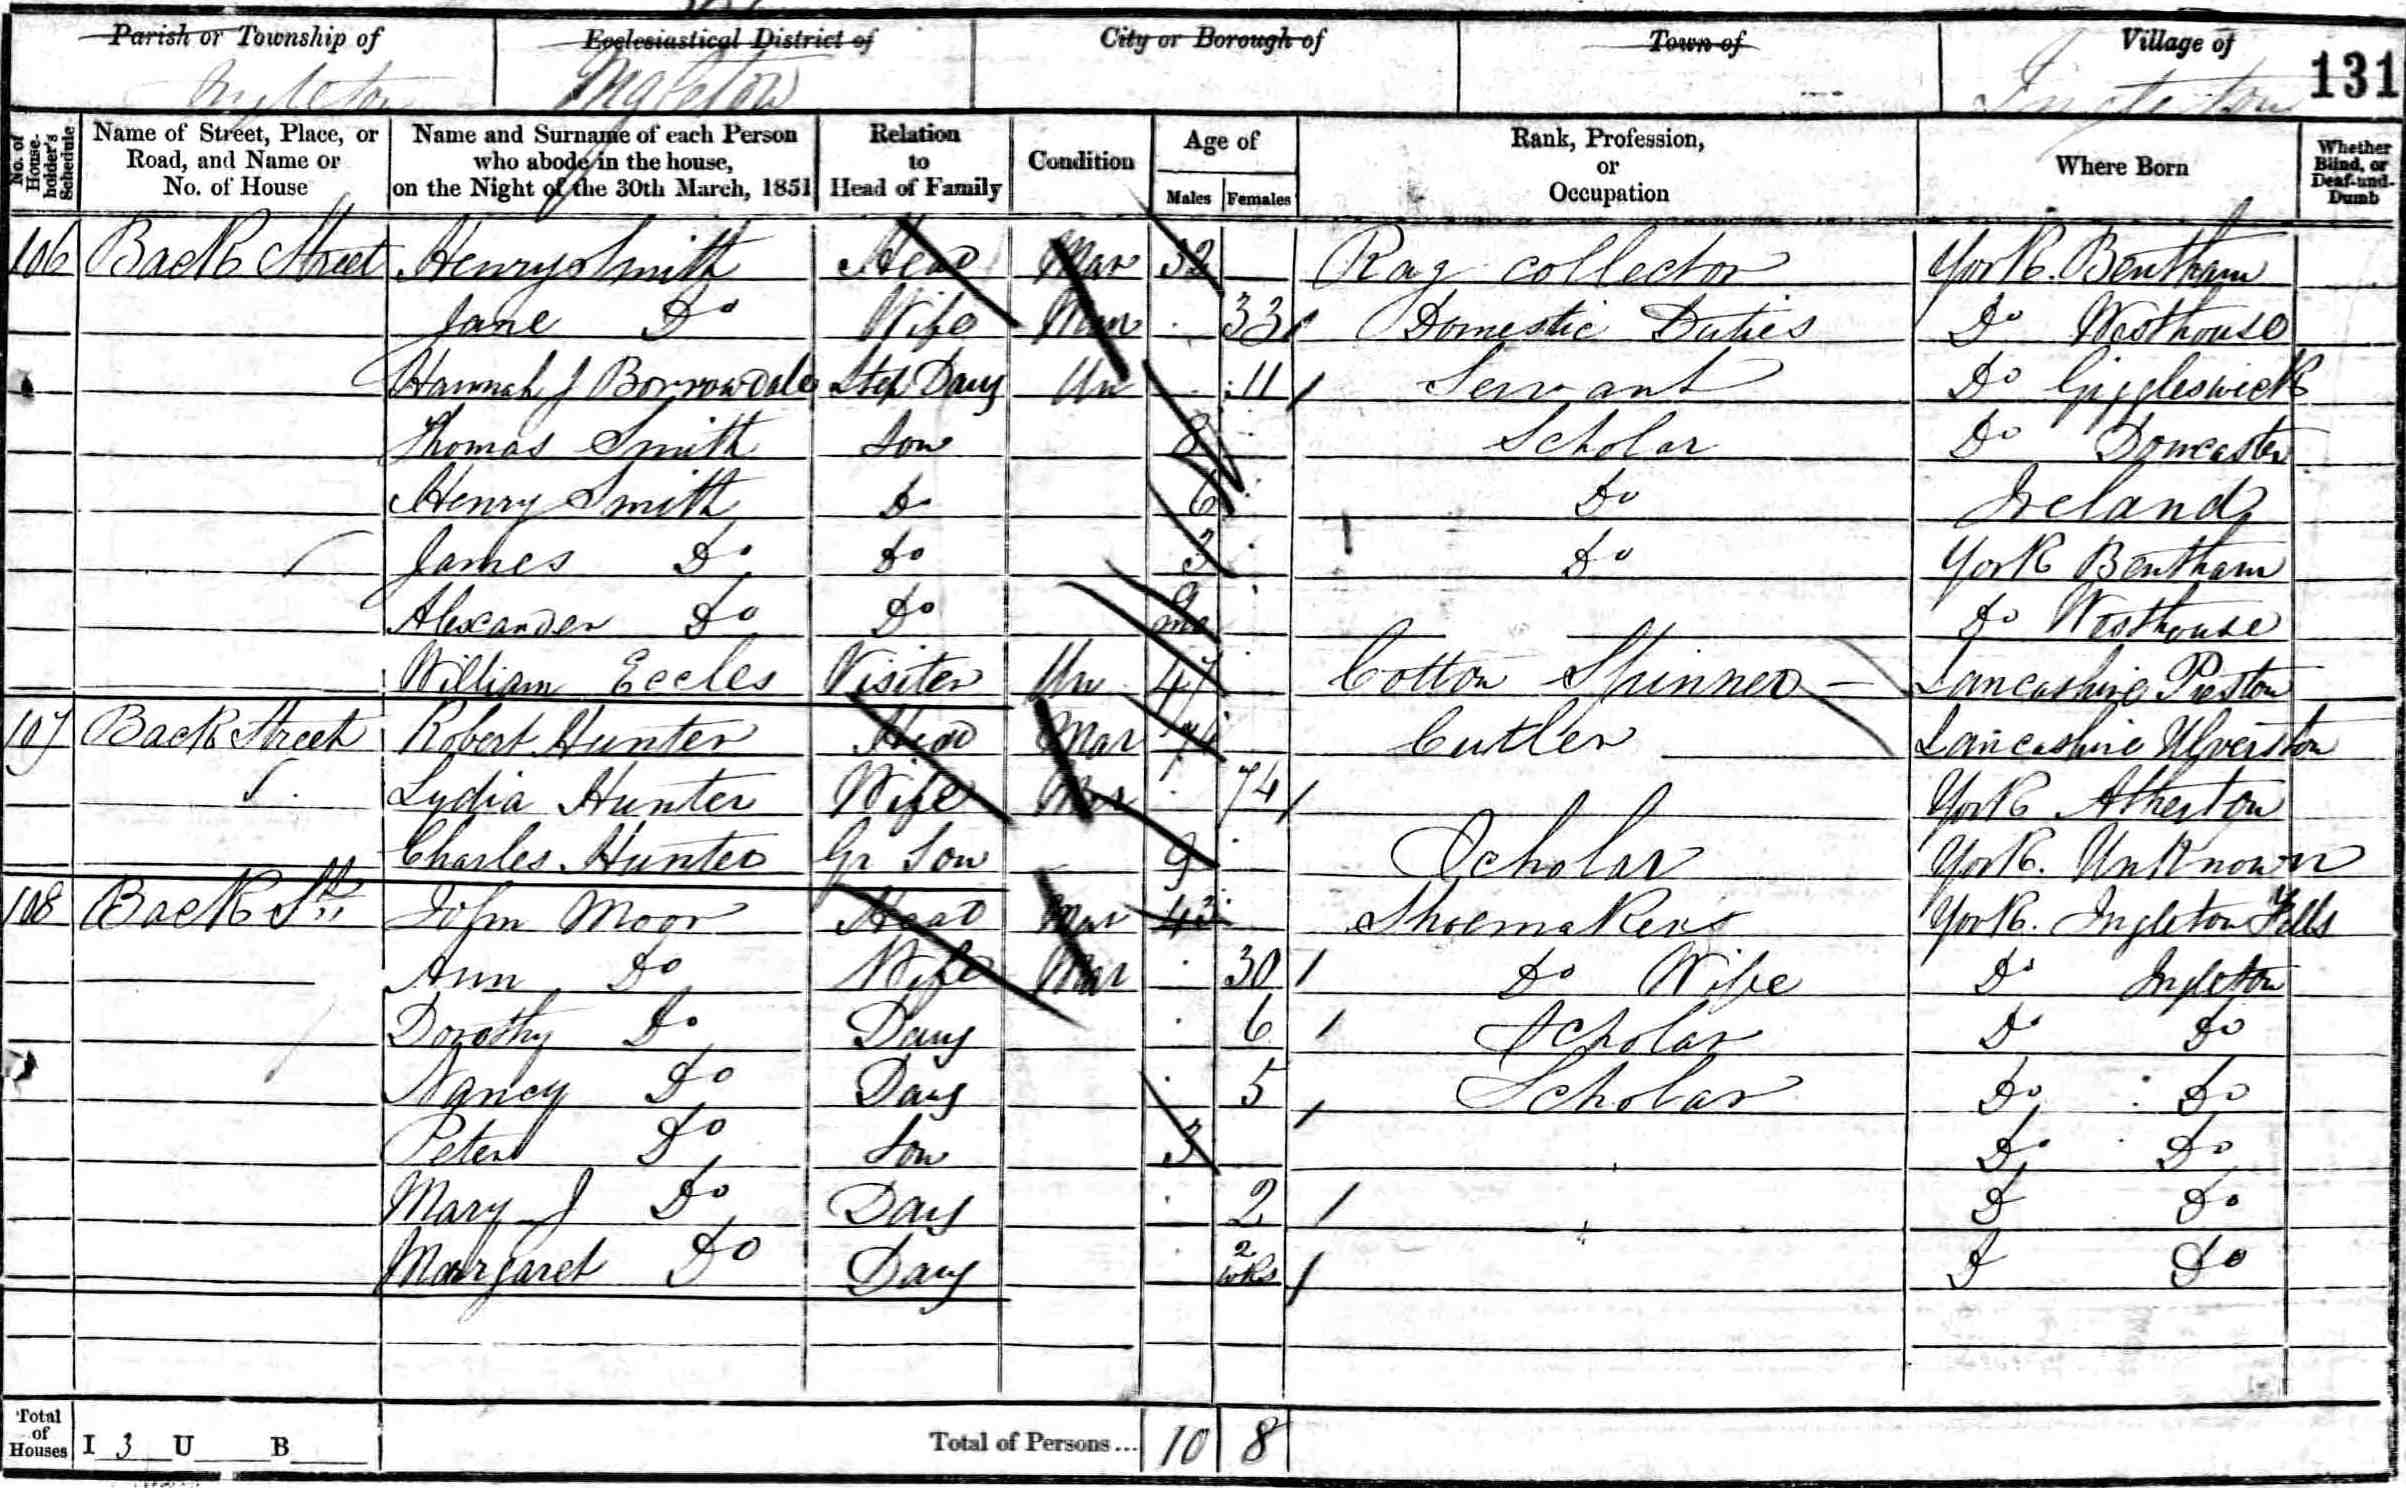 Parish or Township of Ecclesiastical District of City or Borough of Town of Village of 131
Ingleton Ingleton Ingleton
No. of House-holder's Schedule Name of Street, Place, or Road, and Name or No. of House Name and Surname of each Person who abode in the house, on the Night of the 30th March, 1851 Relation to Head of Family Condition Age of Males Females Rank, Profession, or Occupation Where Born Whether Blind, or Deaf-and-Dumb
106 Back Street Henry Smith Head Mar 32 Rag collector York. Bentham
Jane Do Wife Mar 33 Domestic Duties Do Westhouse
Hannah J Borrowdale Step Daug Un 11 Servant Do Giggleswick
Thomas Smith Son 8 Scholar Do Doncaster
Henry Smith Do 6 Do Ireland
James Do Do 3 Do York Bentham
Alexander Do Do 9 mo Do Westhouse
William Eccles Visiter Un 47 Cotton Spinner Lancashire Preston
107 Back Street Robert Hunter Head Mar 74 Cutler Lancashire Ulverston
Lydia Hunter Wife Mar 74 York Atherton
Charles Hunter Gr Son 9 Scholar York. Unknown
108 Back St John Moor Head Mar 43 Shoemaker York. Ingleton Fells
Ann Do Wife Mar 30 Do Wife Do Ingleton
Dorothy Do Daug 6 Scholar Do Do
Nancy Do Daug 5 Scholar Do Do
Peter Do Son 3 Do Do
Mary J Do Daug 2 Do Do
Margaret Do Daug 2 wks Do Do
Total of Houses I 3 U B Total of Persons... 10 8